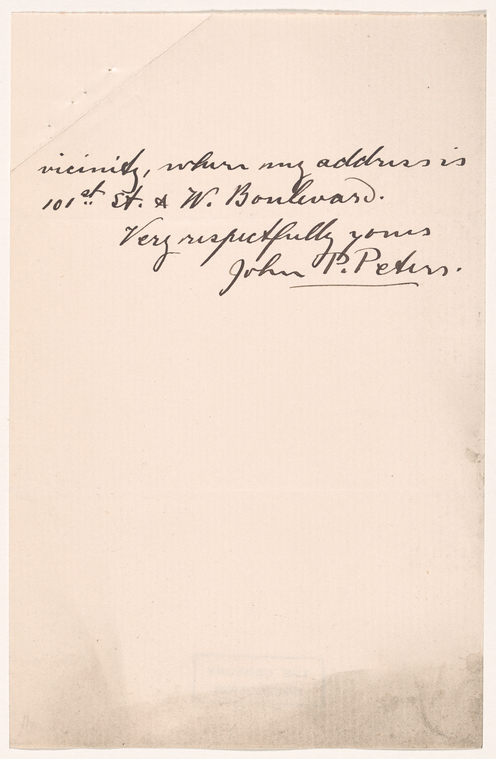 vicinity, where my address is
101st St. & W. Boulevard.
Very respectfully yours
John P. Peters.